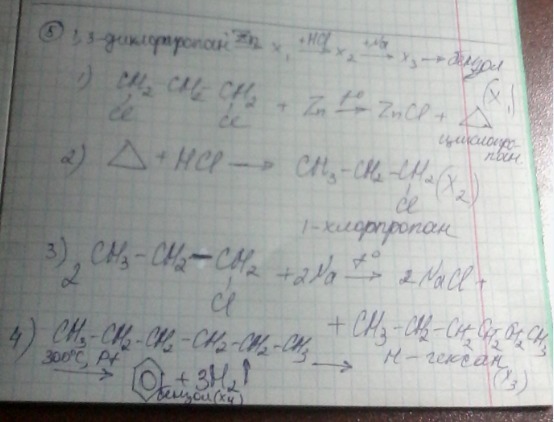 ⑤ 1,3-дихлорпропан Zn→ X₁ +HCl→ X₂ +Na→ X₃ → бензол
1) CH₂-CH₂-CH₂ + Zn t°→ ZnCl + △ (X₁)
Cl Cl
циклопро-
пан
2) △ + HCl → CH₃-CH₂-CH₂ (X₂)
Cl
1-хлорпропан
3) 2 CH₃-CH₂-CH₂ + 2Na t°→ 2NaCl +
Cl
+ CH₃-CH₂-CH₂CH₂CH₂CH₃
н-гексан
(X₃)
4) CH₃-CH₂-CH₂-CH₂-CH₂-CH₃ →
300°C, Pt → + 3H₂↑
бензол (X₄)